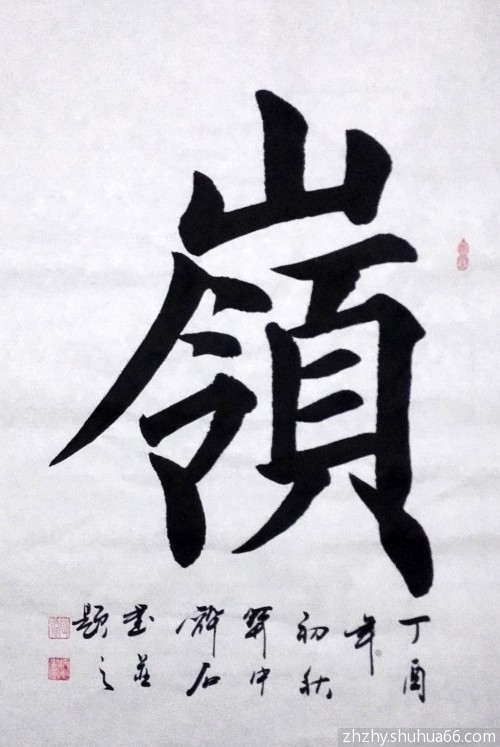 嶺
丁酉
年
初秋
中
石
書並
題之
zhzhy.shuhua66.com